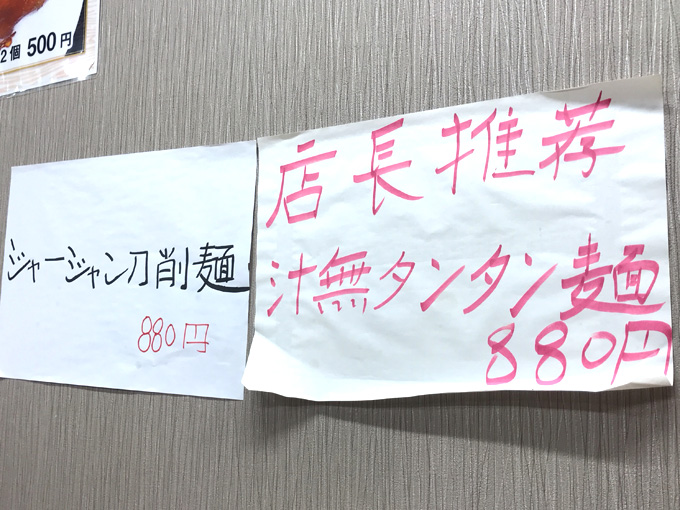 2個 500円
ジャージャン刀削麺
880円
店長推荐
汁無タンタン麺
880円